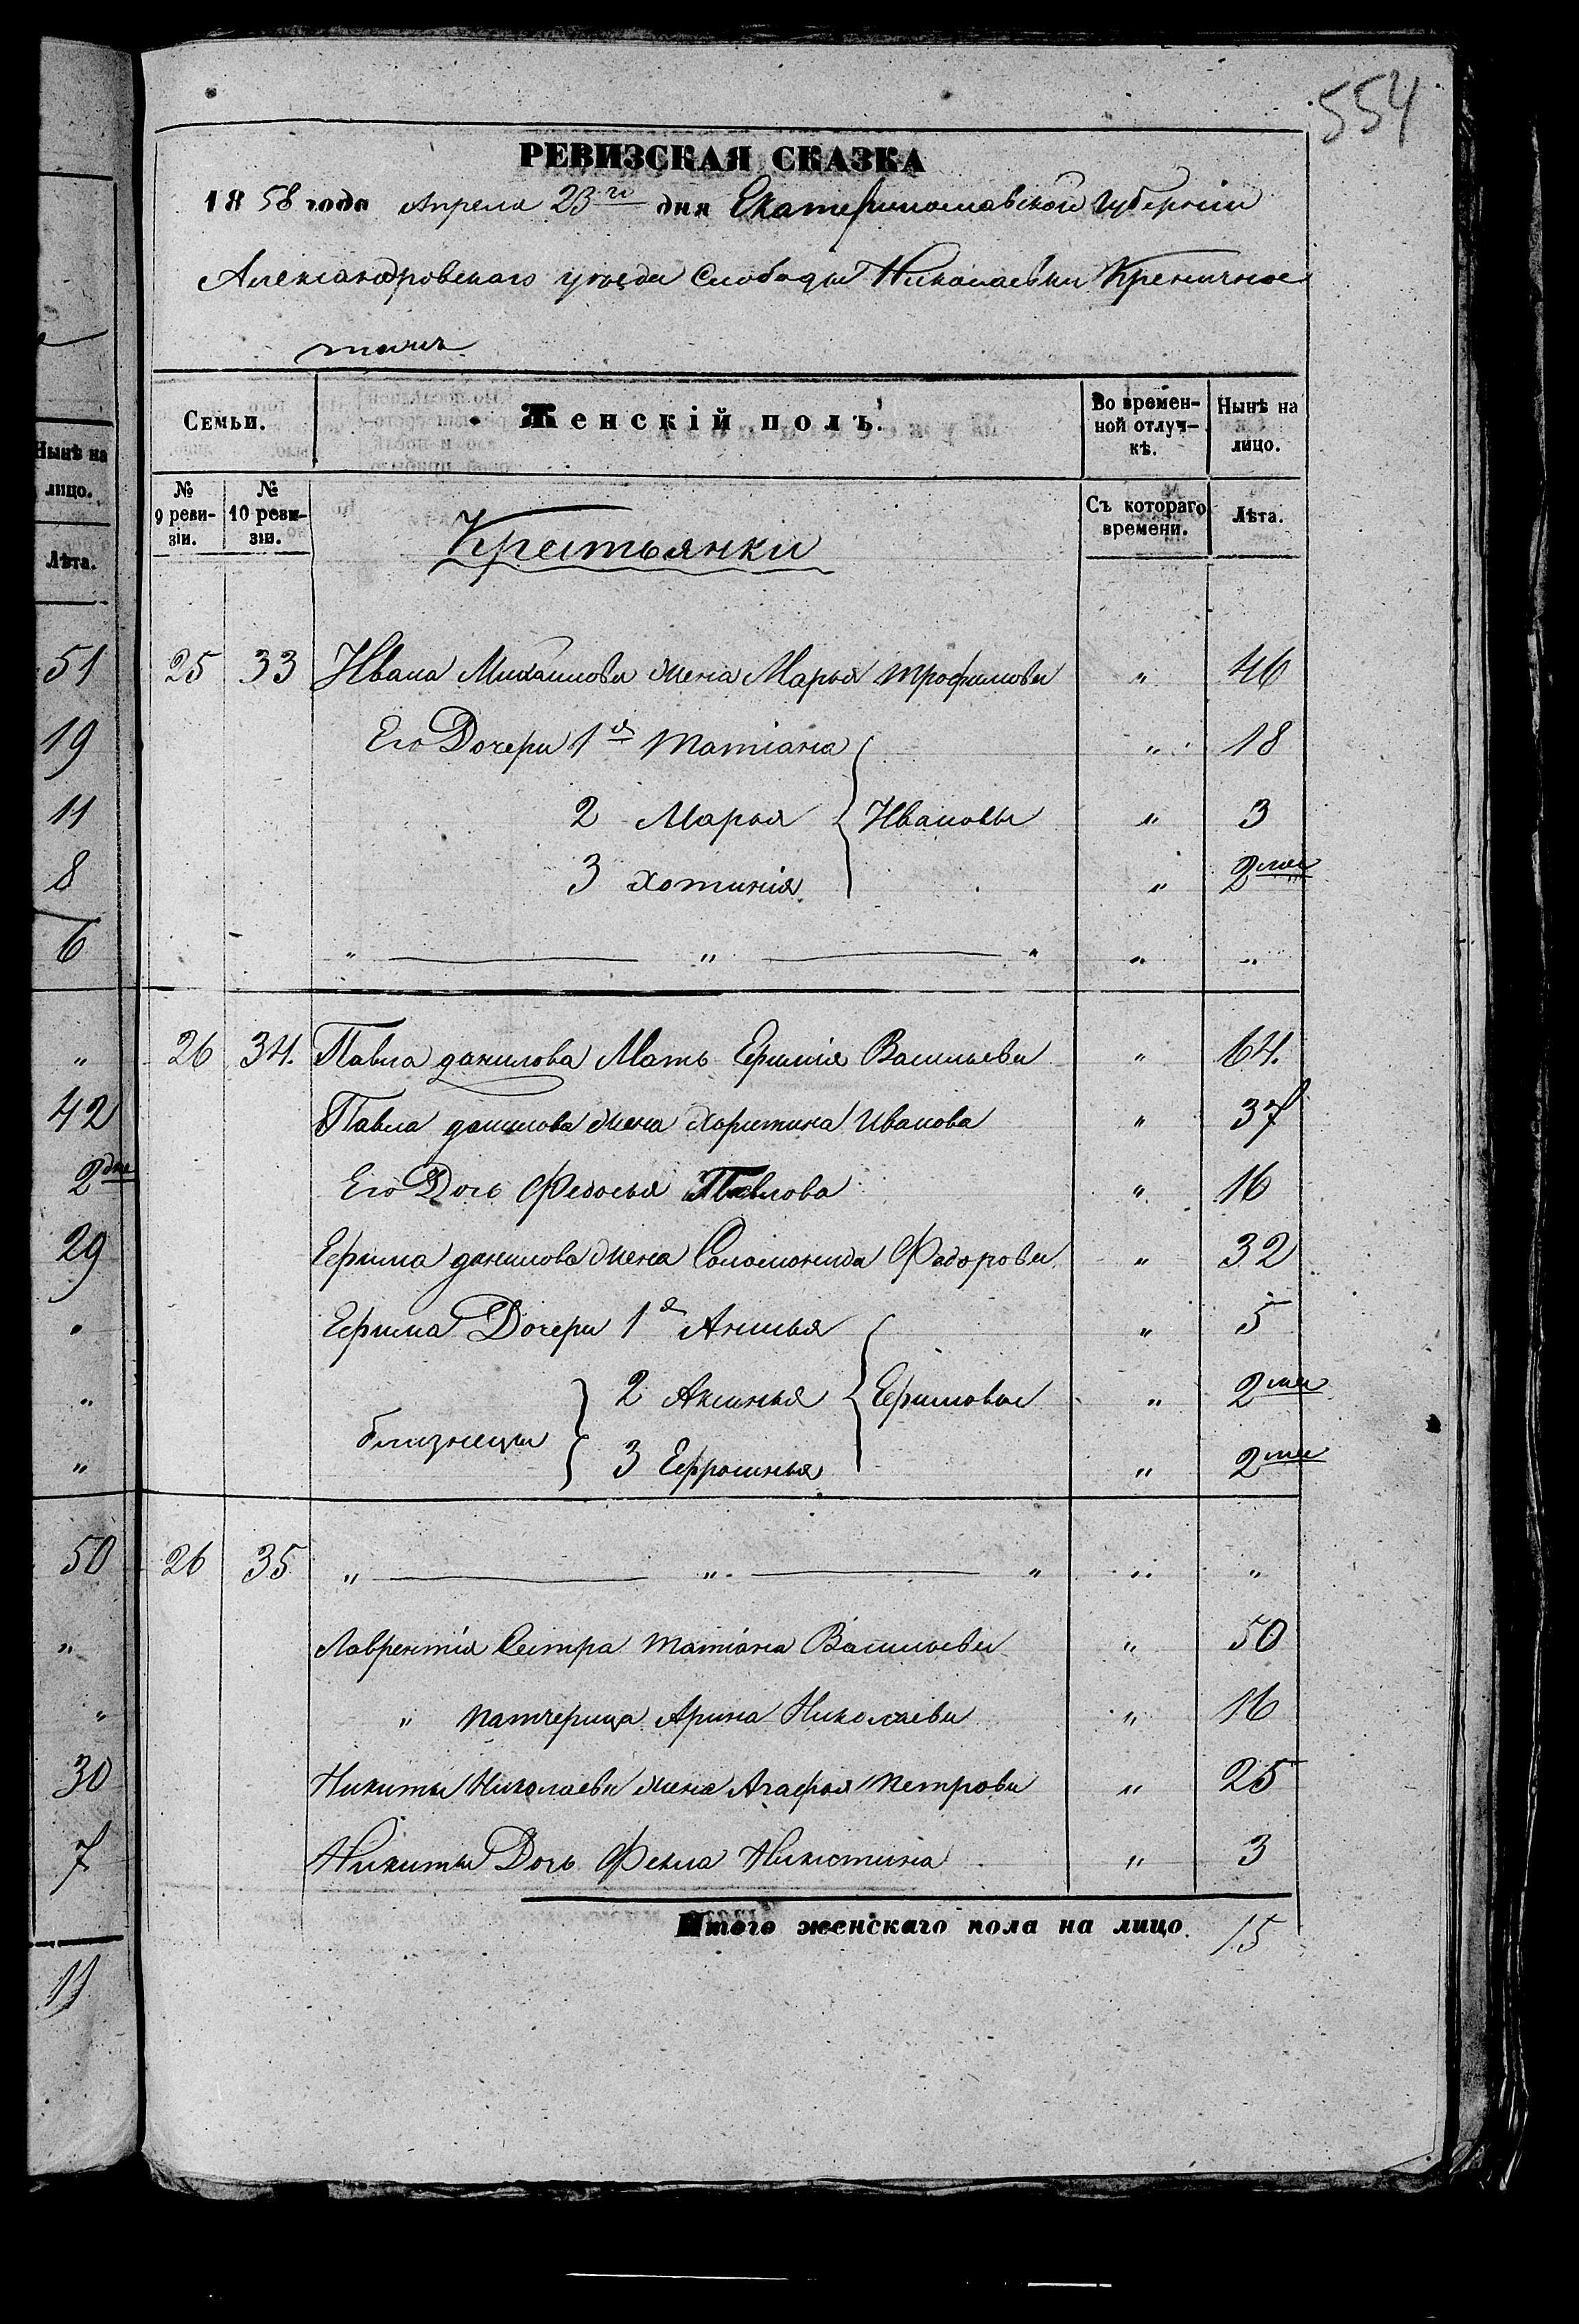 554
РЕВИЗСКАЯ СКАЗКА
1858 года Апреля 23го дня Екатеринославской Губерніи
Александровскаго уѣзда Слободы Николаевки Креничное
тожъ
Семьи.
Женскій полъ.
Во времен-
ной отлуч-
кѣ.
Нынѣ на
лицо.
№
9 реви-
зіи.
№
10 реви-
зіи.
Съ котораго
времени.
Лѣта.
Крестьянки
25 33 Ивана Михаилова жена Марья Трофимова „ 46
Его Дочери 1я Татіана „ 18
2 Марья } Ивановы „ 3
3 Хотинія „ 2 мес
„ — „ — „ „ „
26 34. Павла данилова Мать Ефимія Васильева „ 64.
Павла данилова жена Харитина Иванова „ 37
Его Дочь Федосья Павлова „ 16
Ефима данилова жена Соломонида Федорова „ 32
Ефима Дочери 1я Анисья „ 5
2 Аксинья { Ефимовы „ 2 мес
близнецы } 3 Ефросинья „ 2 мес
26 35 „ — „ — „ „ „
Лаврентія Сестра Татіана Васильева „ 50
„ патчерица Арина Николаева „ 16
Никиты Николаева жена Агафья Петрова „ 25
Никиты Дочь Фекла Никитина „ 3
Итого женскаго пола на лицо. 15
Нынѣ на
лицо.
Лѣта.
51
19
11
8
6
„
42
2 дне
29
„
„
„
50
„
„
30
7
11